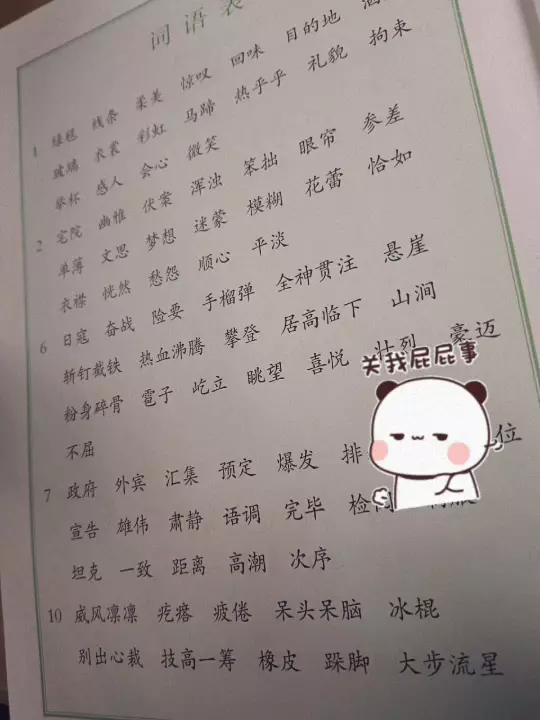 词语表
1 绿毯 线条 柔美 惊叹 回味 目的地
玻璃 衣裳 彩虹 马蹄 热乎乎 礼貌 拘束
举杯 感人 会心 微笑
2 宅院 幽雅 伏案 浑浊 笨拙 眼帘 参差
单薄 文思 梦想 迷蒙 模糊 花蕾 恰如
衣襟 恍然 愁怨 顺心 平淡
6 日寇 奋战 险要 手榴弹 全神贯注 悬崖
斩钉截铁 热血沸腾 攀登 居高临下 山涧
粉身碎骨 雹子 屹立 眺望 喜悦 壮烈 豪迈
不屈
关我屁屁事
7 政府 外宾 汇集 预定 爆发 排 位
宣告 雄伟 肃静 语调 完毕 检
坦克 一致 距离 高潮 次序
10 威风凛凛 疙瘩 疲倦 呆头呆脑 冰棍
别出心裁 技高一筹 橡皮 跺脚 大步流星